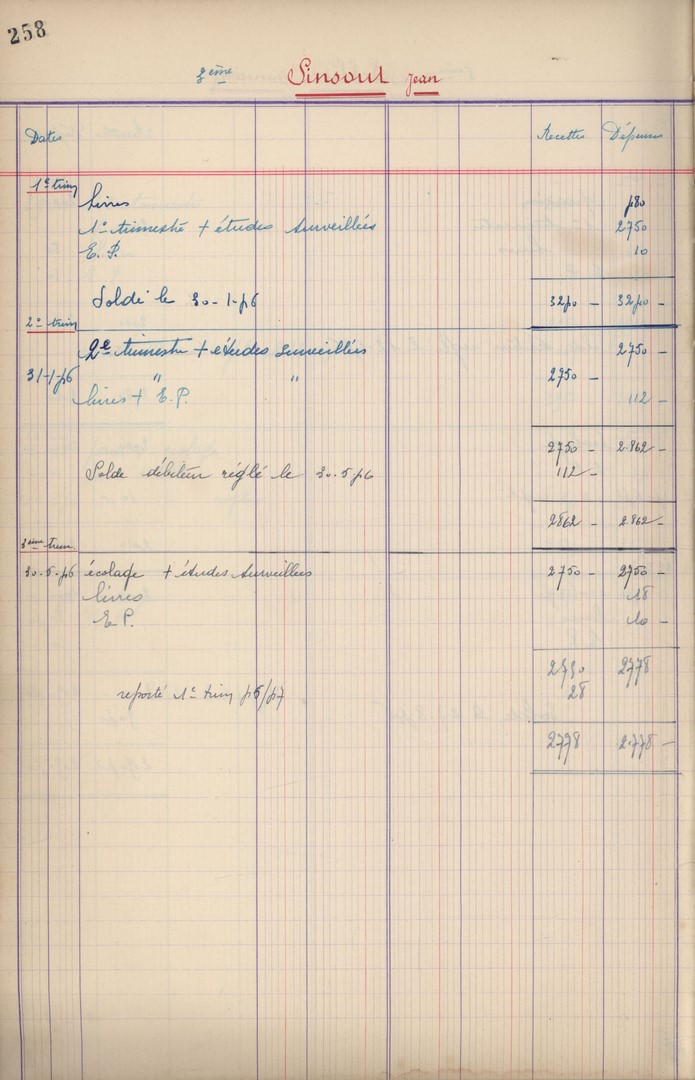 258
2ème Sinsout Jean
Dates Recettes Dépenses
1e trim
livres 580
1e trimestre + études surveillées 2750
E.P. 10
Soldé le 30-1-56 3250 - 3250 -
2e trim
2e trimestre + études surveillées 2750 -
31-1-56 " " 2750 -
livres + E.P. 112 -
2750 - 2.862 -
Solde débiteur réglé le 30.5.56 112 -
2862 - 2.862 -
3ème trim.
30.5.56 écolage + études surveillées 2750 - 2750 -
livres 18
E.P. 10 -
2750 2778
reporté 1e trim 56/57 28
2778 2.778 -